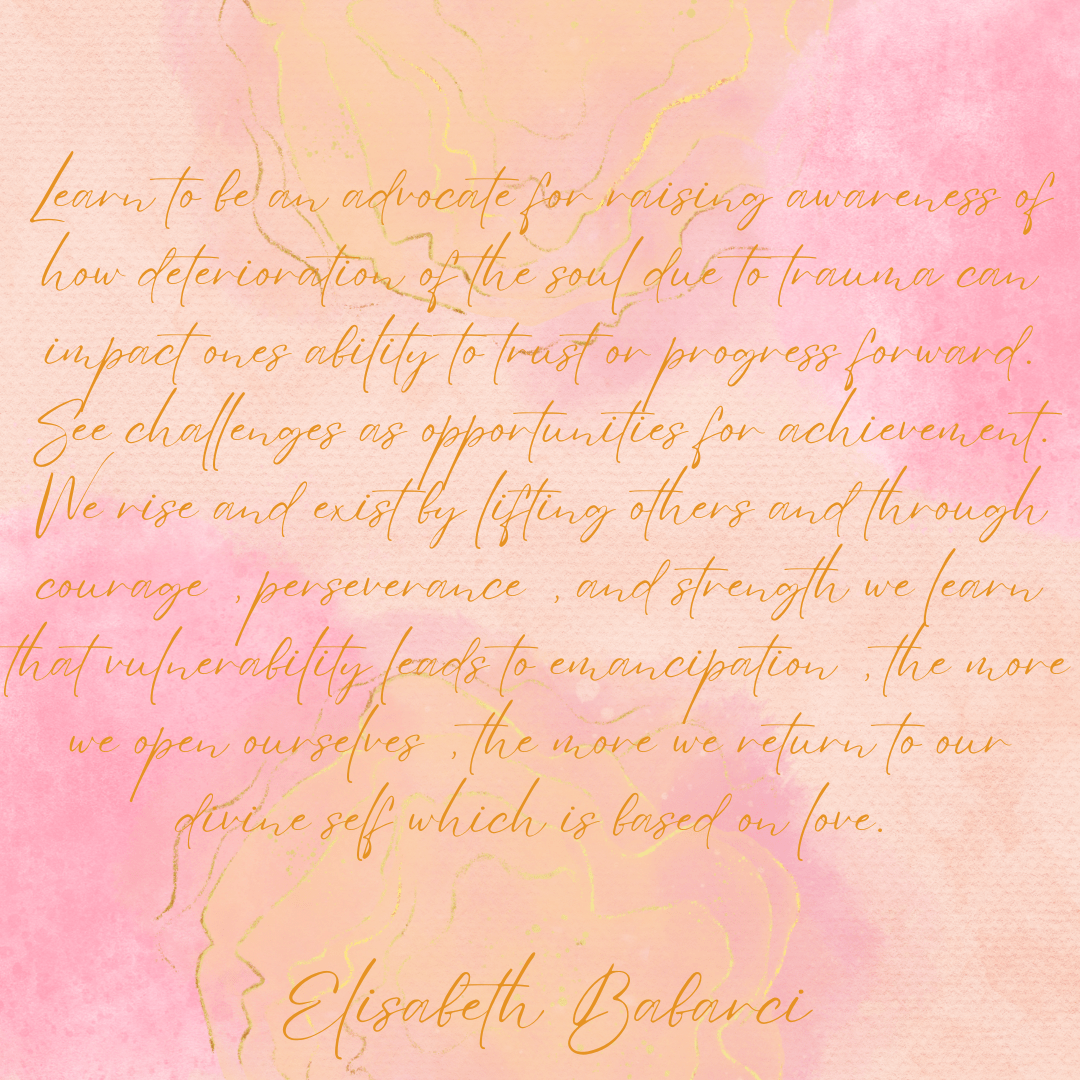 Learn to be an advocate for raising awareness of
how deterioration of the soul due to trauma can
impact ones ability to trust or progress forward.
See challenges as opportunities for achievement.
We rise and exist by lifting others and through
courage , perseverance , and strength we learn
that vulnerability leads to emancipation , the more
we open ourselves , the more we return to our
divine self which is based on love.
Elisabeth Babarci